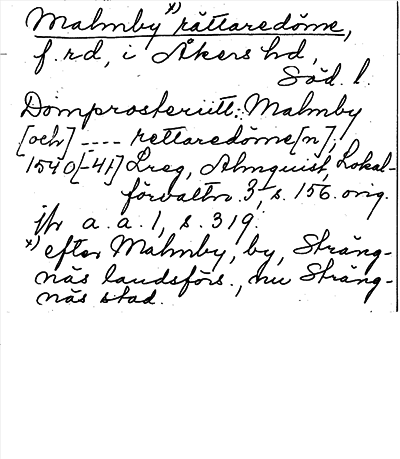 Malmby x) rättaredöme,
f. rd, i Åkers hd,
Söd. l.
Domprosteriutt: Malmby
[och] ---- rettaredöme[n],
1540[-41] Lreg, Almquist, Lokal-
förvaltn. 3, s. 156. orig.
jfr a. a. 1, s. 319.
x) efter Malmby, by, Sträng-
näs landsförs., nu Sträng-
näs stad.